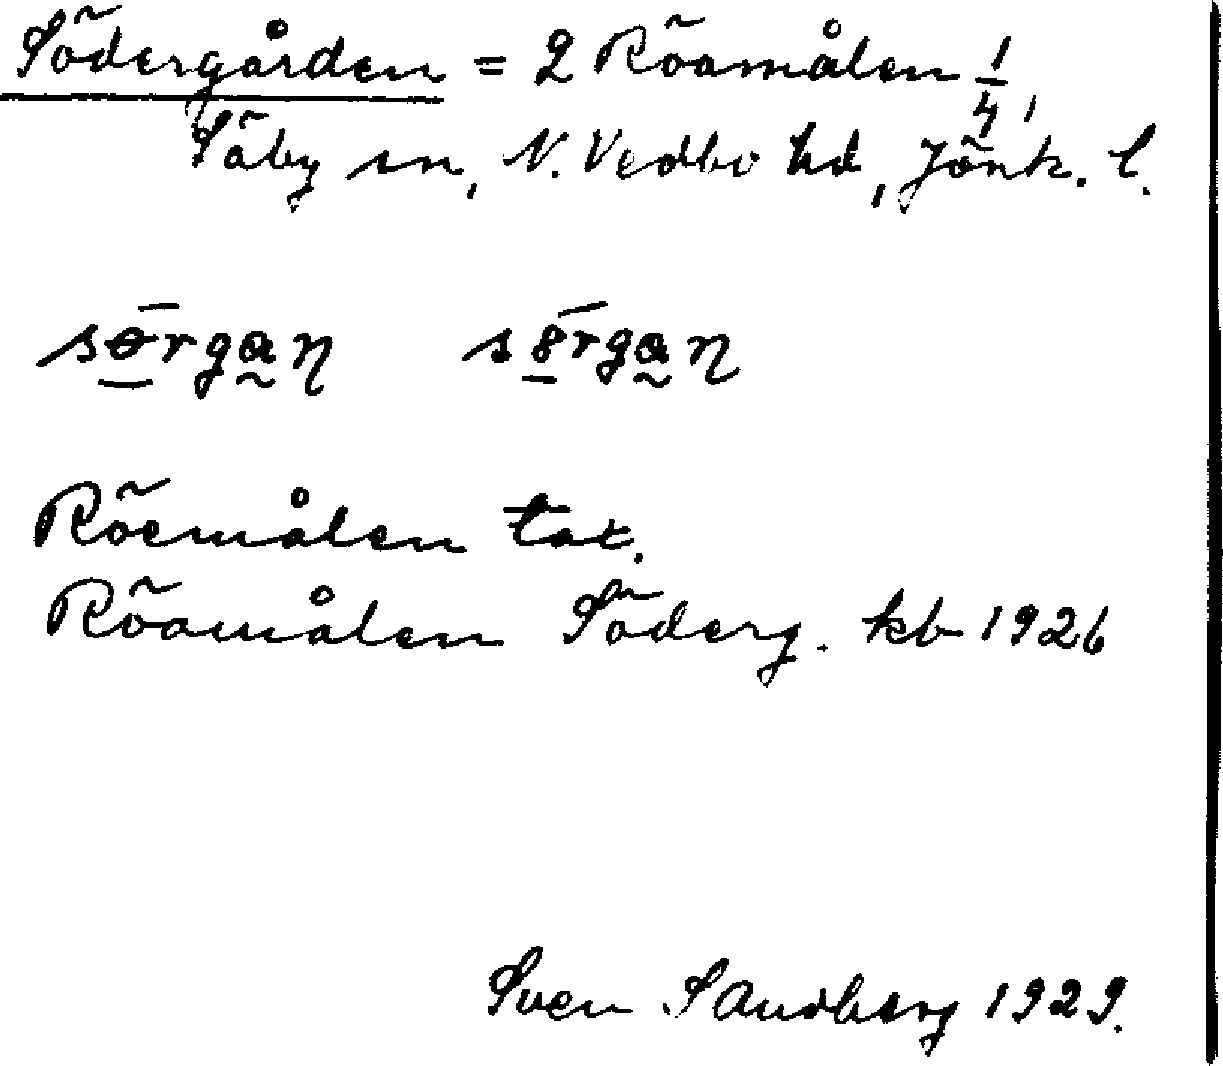 Södergården = 2 Röamålen 1/4,
Säby sn, N. Vedbo hd, Jönk. l.
sɵ̄rgaη s8̄rgaη
Röemålen tax.
Röamålen Söderg. kb 1926
Sven Sandberg 1929.